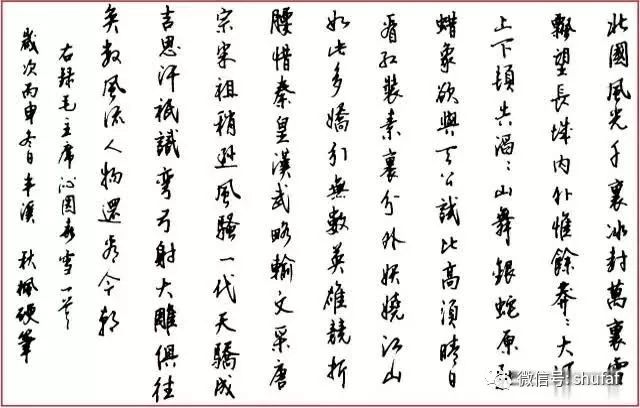 北國風光千裏冰封萬裏雪
飄望長城內外惟餘莽〻大河
上下頓失滔〻山舞銀蛇原馳
蜡象欲與天公試比高須晴日
看紅裝素裹分外妖嬈江山
如此多嬌引無數英雄競折
腰惜秦皇漢武略輸文采唐
宗宋祖稍遜風騷一代天驕成
吉思汗祇識彎弓射大雕俱往
矣數風流人物還看今朝
右錄毛主席沁園春雪一首
歲次丙申冬日半溪 秋楓硬筆
微信号: shufai